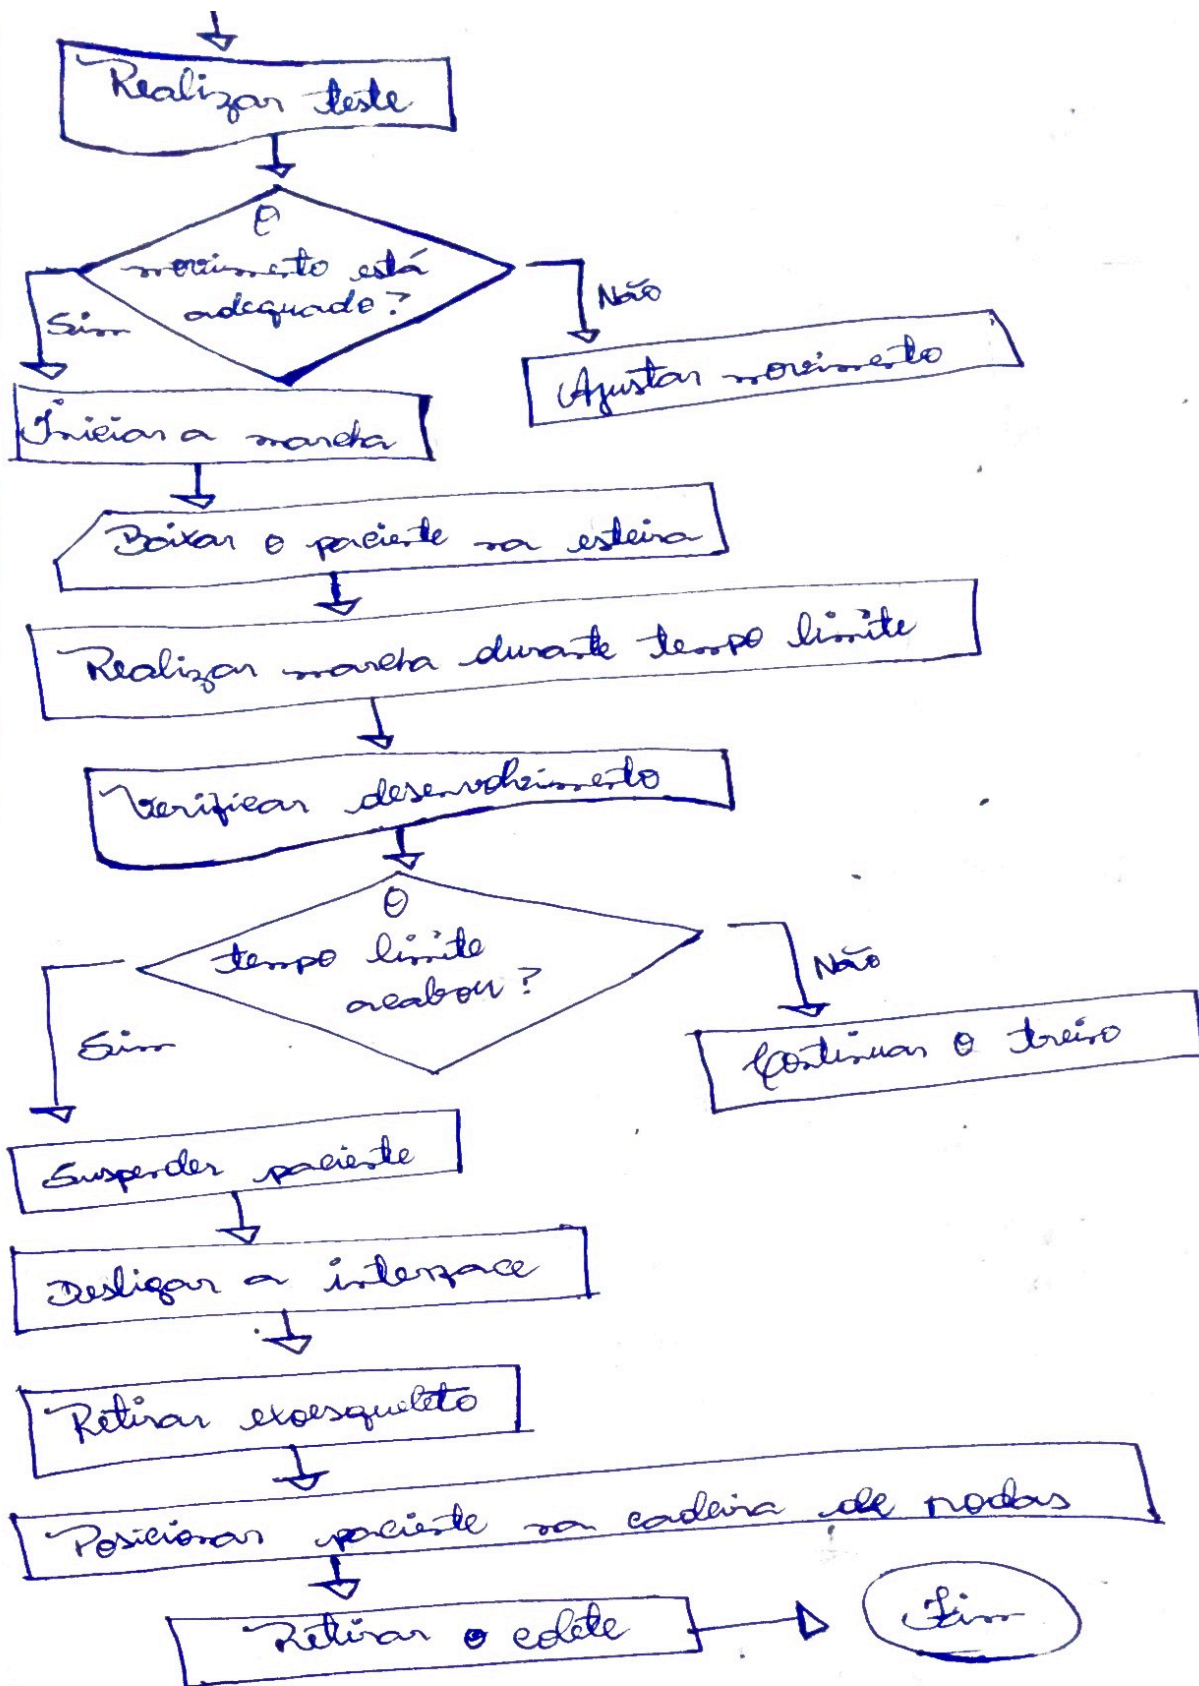 Realizar teste
O
movimento está
adequado?
Sim
Não
Ajustar movimento
Iniciar a marcha
Baixar o paciente na esteira
Realizar marcha durante tempo limite
Verificar desenvolvimento
O
tempo limite
acabou?
Sim
Não
Continuar o treino
Suspender paciente
Desligar a interface
Retirar exoesqueleto
Posicionar paciente na cadeira de rodas
Retirar o colete
Fim